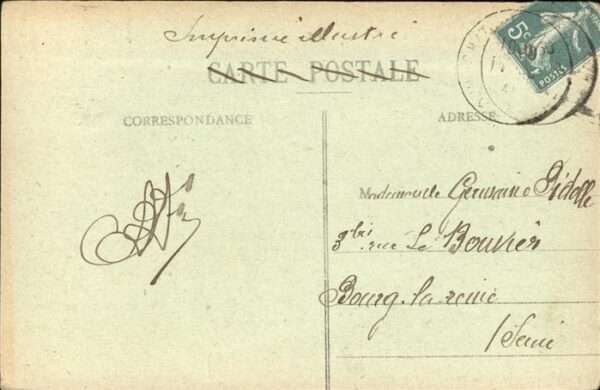 Imprimé illustré
CARTE POSTALE
CORRESPONDANCE
ADRESSE
5c
POSTES
Mademoiselle Germaine
3 bis rue Le Bouvier
Bourg-la-reine
/Seine